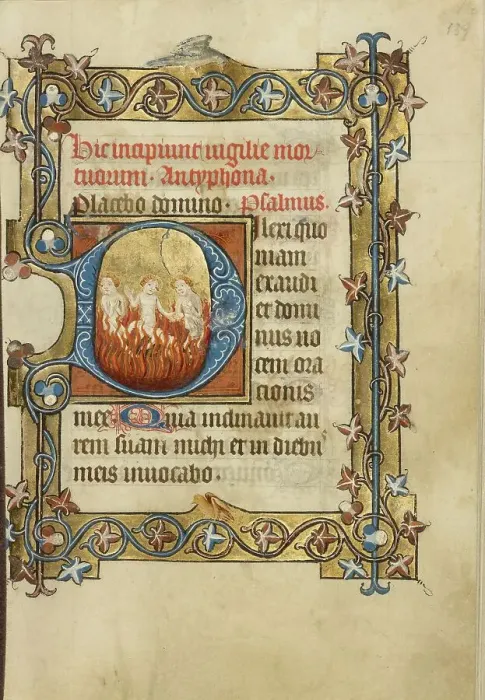 Hic incipiunt uigilie mor
tuorum · Antyphona ·
Placebo domino · Psalmus.
Dilexi quo
niam
exaudi
et domi
nus uo
cem ora
tionis
mee Quia inclinauit au
rem suam michi et in diebus
meis inuocabo ·